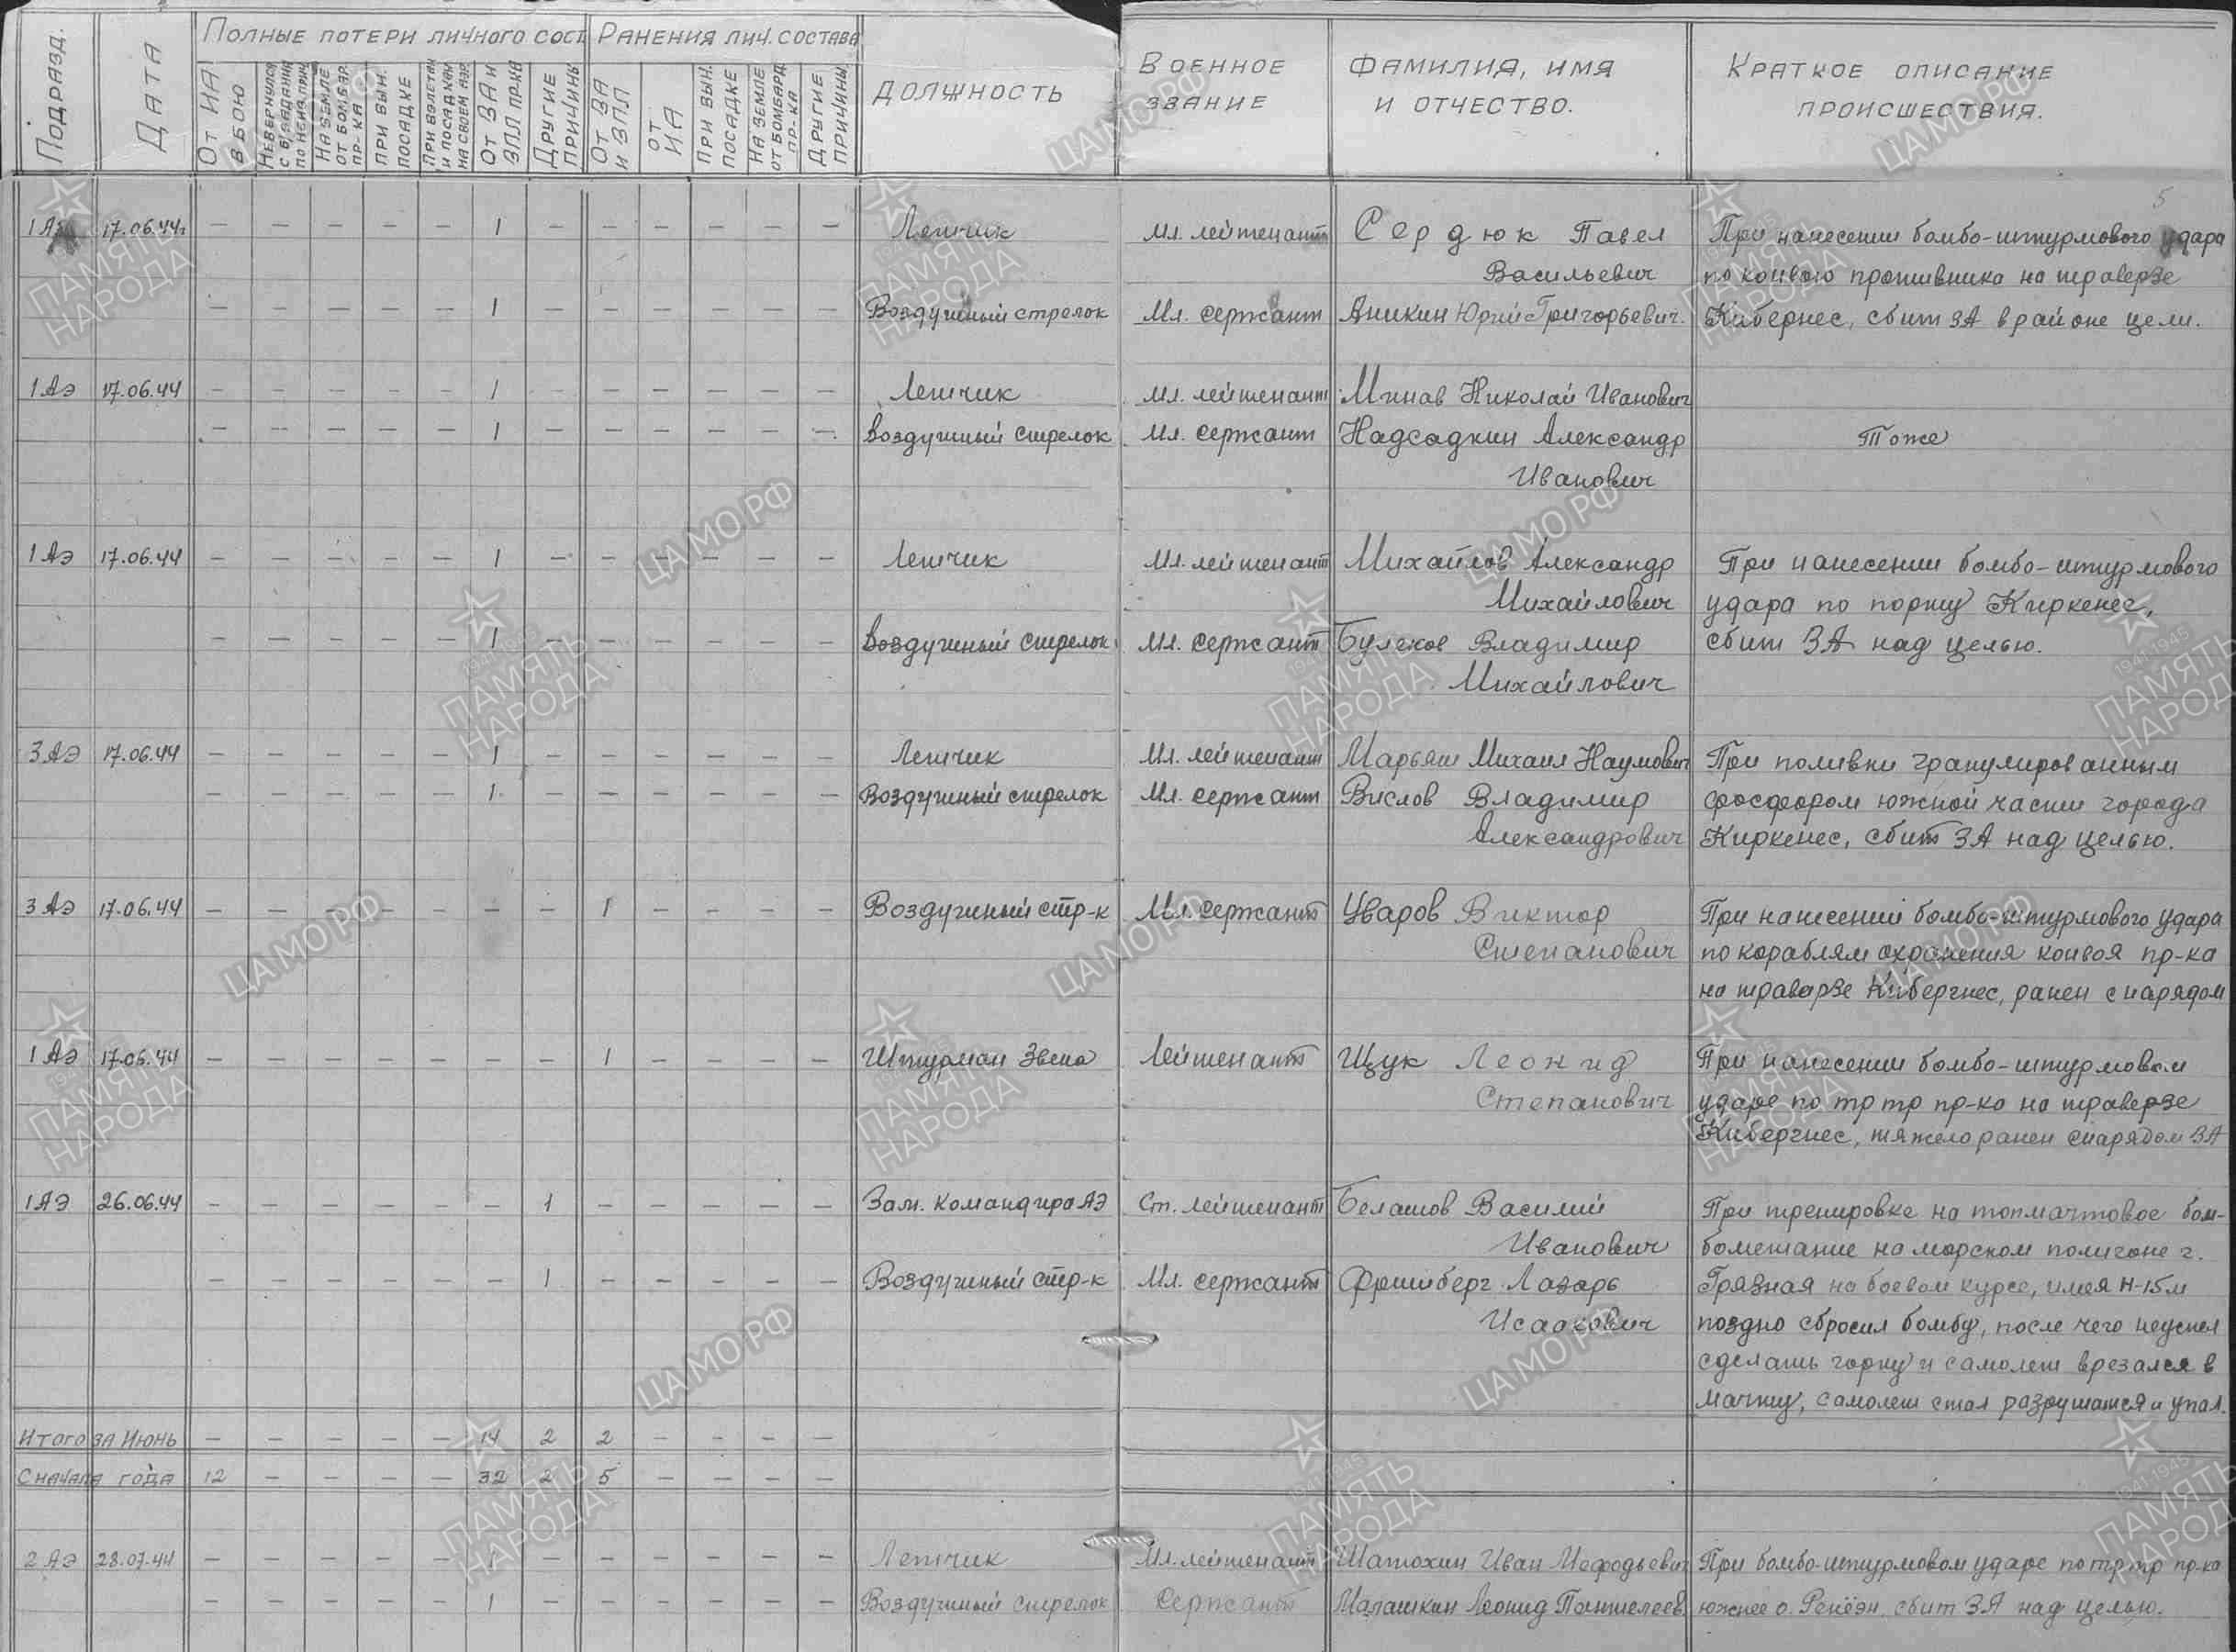 Подразд.
Дата
Полные потери личного сост.
Ранения лич. состава
От ИА в бою
Невернулся с б/задания по неизв. прич.
На земле от бомбар. пр-ка
При вын. посадке
При взлетах и посадках на своем аэр.
От ЗА и ЗПЛ пр-ка
Другие причины
От ЗА и ЗПЛ
от ИА
При вын. посадке
На земле от бомбард. пр-ка
Другие причины
Должность
Военное звание
Фамилия, имя и отчество.
Краткое описание происшествия.
5
1 АЭ 17.06.44г — — — — — 1 — — — — — — Летчик Мл. лейтенант Сердюк Павел При нанесении бомбо-штурмового удара
Васильевич по конвою противника на траверзе
— — — — — 1 — — — — — — Воздушный стрелок Мл. сержант Аникин Юрий Григорьевич. Кибернес, сбит ЗА в районе цели.
1 АЭ 17.06.44 — — — — — 1 — — — — — — Летчик Мл. лейтенант Минов Николай Иванович
— — — — — 1 — — — — — — Воздушный стрелок Мл. сержант Надсадкин Александр Тоже
Иванович
1 АЭ 17.06.44 — — — — — 1 — — — — — — Летчик Мл. лейтенант Михайлов Александр При нанесении бомбо-штурмового
Михайлович удара по порту Киркенес,
— — — — — 1 — — — — — — Воздушный стрелок Мл. сержант Булеков Владимир сбит ЗА над целью.
Михайлович
3 АЭ 17.06.44 — — — — — 1 — — — — — — Летчик Мл. лейтенант Марьяш Михаил Наумович При поливки гранулированным
— — — — — 1 — — — — — — Воздушный стрелок Мл. сержант Вислов Владимир фосфором южной части города
Александрович Киркенес, сбит ЗА над целью.
3 АЭ 17.06.44 — — — — — — — 1 — — — — Воздушный стр-к Мл. сержант Уваров Виктор При нанесении бомбо-штурмового удара
Степанович по кораблям охранения конвоя пр-ка
на траверзе Кибергнес, ранен снарядом
1 АЭ 17.06.44 — — — — — — — 1 — — — — Штурман Звена Лейтенант Щук Леонид При нанесении бомбо-штурмовом
Степанович ударе по тр тр пр-ка на траверзе
Кибергнес, тяжело ранен снарядом ЗА
1 АЭ 26.06.44 — — — — — — 1 — — — — — Зам. командира АЭ Ст. лейтенант Белашов Василий При тренировке на топмачтовое бом-
Иванович бометание на морском полигоне г.
— — — — — — 1 — — — — — Воздушный стр-к Мл. сержант Фришберг Лазарь Грязная на боевом курсе, имея Н-15м
Исаакович поздно сбросил бомбу, после чего неуспел
сделать горку и самолет врезался в
мачту, самолет стал разрушатся и упал.
Итого за Июнь — — — — — 14 2 2 — — — —
Сначала года 12 — — — — 32 2 5 — — — —
2 АЭ 28.07.44 — — — — — 1 — — — — — — Летчик Мл. лейтенант Шатохин Иван Мефодьевич При бомбо-штурмовом ударе по тр тр пр-ка
— — — — — 1 — — — — — — Воздушный стрелок Сержант Малашкин Леонид Пантелеев. южнее о. Ренёэн сбит ЗА над целью.
ЦАМО.РФ
ПАМЯТЬ НАРОДА
1941-1945